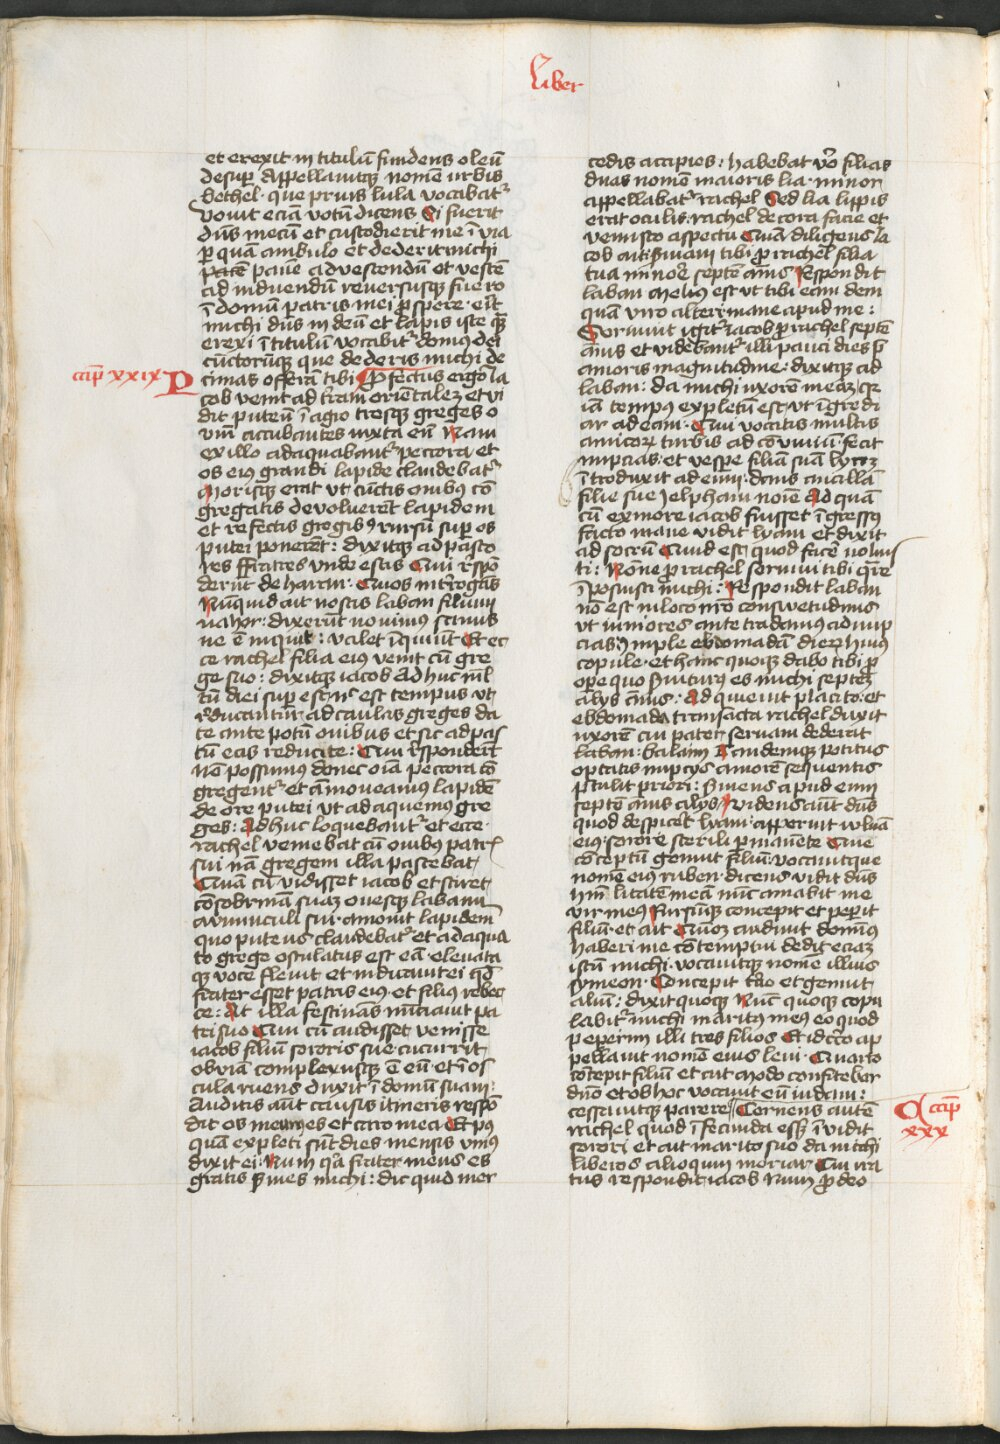 Liber
et erexit in titulū fundens oleū
desup̄ Appellauitqꝫ nomē urbis
bethel · que prius lula vocabatᷣ
Vouit eciā votū dicens Si fuerit
dūs mecū et custodierit me ī via
ꝑ quā ambulo et dederit michi
panē ad vescendū et vestē
ad induendū reuersusqꝫ fuero
ī domū patris mei ꝓspere · erit
michi dūs in deū et lapis iste quē
erexi ī titulū vocabitᷣ domus dei
cūctorūqꝫ que dederis michi de
cap̄ xxix P
cimas offerā tibi Profectus ergo ia
cob venit ad terram orientalē et vi
dit puteū ī agro tresqꝫ greges o
viū accubantes iuxta eū Nam
ex illo adaquabantᷣ peccora et
os eius grandi lapide claudebatᷣ
Morisqꝫ erat ut cūctis ouibus cō
gregatis deuoluerēt lapidem
et refectis gregibꝫ rursū sup̄ os
putei ponerēt : dixitqꝫ ad pasto
res Fratres unde estis Qui rn̄spō
derūt de harran · Quos interrogās
Nūquid ait nostis laban filium
nahor : dixerūt nouimus Sanus
ne ē inquit : valet īquiūt Et ec
ce rachel filia eius venit cū gre
ge suo : dixitqꝫ iacob Adhuc ml̄
tū diei sup̄ est nᵉ est tempus ut
reducantur ad caulas greges da
te ante potū ouibus et sic ad pas
tū eas reducite : Qui rn̄sponderūt
Nō possumus donec oīa peccora cō
gregentᷣ et amoueamus lapidē
de ore putei ut adaquemus gre
ges : Adhuc loquebantᷣ et ecce ·
rachel veniebat cū ouibus patris
sui nā gregem illa pascebat
Quā cū vidisset iacob et sciret
cōsobrinā suā ouesqꝫ labam
auunculi sui · amouit lapidem
quo puteus claudebatᷣ et adaqua
to grege osculatus est eā · eleuata
qꝫ voce fleuit et indicauit ei qd̄
frater esset patris eius · et filius rebec
ce : At illa festinās nūciauit pa
tri suo Qui cū audisset venisse
iacob filiū sororis sue · cucurrit
obuiā complexusqꝫ ē eū et ī os
cula ruens duxit ī domū suam :
Auditis aūt causis itineris respō
dit os meum es et caro mea Et pꝰ
quā expleti sūt dies mensis vnius
dixit ei : Num qꝛ frater meus es
gratis ẜuies michi : dic quid mer
cedis accipies : habebat vō filias
duas nomē maioris lia · minor
appellabatᷣ rachel Sed lia lippis
erat oculis · rachel decora facie et
venusto aspectu Quā diligens ia
cob ait ẜuiam tibi ꝓ rachel filia
tua minore septē annis Respondit
laban Melius est ut tibi eam dem
quā viro alteri mane apud me :
Seruiuit igitᷣ iacob ꝓ rachel septē
annis et videbantᷣ illi pauci dies p̄
amoris magnitudine : dixitqꝫ ad
laban : da michi uxorē meaꝫ qꝛ
iā tempus expletū est ut īgredi
ar ad eam · Qui vocatis multis
amicorꝫ turbis ad cōuiuiū fecit
nupcias · et vespe filiā suā lyaꝫ
ītroduxit ad eum : dans ancillā
filie sue zelpham noīe Ad quā
cū ex more iacob fuisset īgressus
facto mane vidit lyam et dixit
ad socrū Quid est quod facē voluis
ti : Nōne ꝓ rachel seruiui tibi qr̄e
īposuisti michi : Respondit laban
nō est in loco nr̄o conswetudinis
ut minores ante tradamus ad nup
cias · imple ebdomadā dierꝫ huius
copule · et hanc quoqꝫ dabo tibi ꝓ
ope quo ẜuiturus es michi septeꝫ
alijs annis : Adquieuit placito : et
ebdomada transacta rachel duxit
uxorē cui pater seruam dederat
laban : balam Tandemqꝫ potitus
optatis nupcijs amorē sequentis
p̄tulit priori : ẜuiens apud eum
septē annis alijs Videns aūt dūs
quod despicet lyam · apperuit wluā
eius · sorore sterili ꝑmanēte Que
cōceptū genuit filiū : vocauitque
nomē eius ruben · dicens vidit dūs
humilitatē meā nūc amabit me
vir meus Rursūqꝫ concepit et peperit
filiū · et ait Quoꝫ audiuit dominus
haberi me cōtemptui dedit eciaꝫ
istū michi · vocauitqꝫ nomē illius
symeon · Concepit t'cio et genuit
aliū : dixit quoqꝫ Nūc quoqꝫ copu
labitᷣ michi maritus meus eo quod
pepererim illi tres filios Et idcirco ap
pellauit nomē eius leui · Quarto
cōcepit filiū et ait Modo confitebor
dn̄o et ob hoc vocauit eū iudam :
cessauitqꝫ parere Cernens autē
cap̄ xxx
rachel quod īfecunda esset īuidit
sorori et ait marito suo da michi
liberos alioquin moriar Cui ira
tus respondit iacob Num ꝓ deo